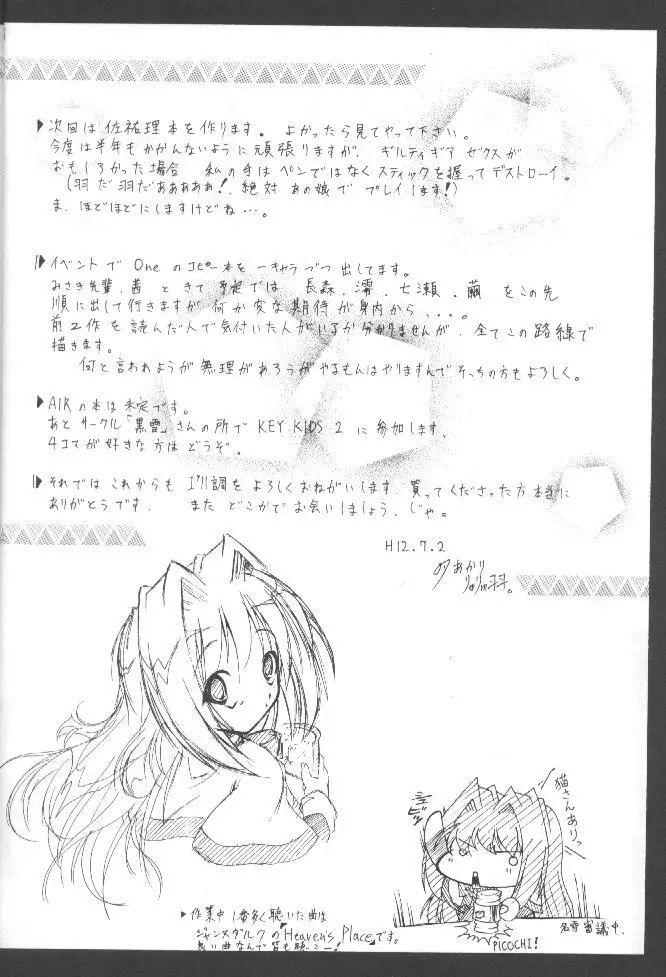 ▶次回は佐祐理本を作ります。よかったら見てやって下さい。
今度は半年もかかんないように頑張りますが、ギルティギア ゼクスが
おもしろかった場合 私の手はペンではなくスティックを握ってデストローイ。
(羽だ羽だあああああ! 絶対 あの娘で プレイします!)
ま、ほどほどにしますけどね…。
▶イベントで Oneのコピー本を一キャラづつ出してます。
みさき先輩、茜 ときて 予定では、長森、澪、七瀬、繭 をこの先
順に出して行きますが 何か変な期待が身内から...。
前2作を読んだ人で気付いた人がいるか分かりませんが、全てこの路線で
描きます。
何と言われようが無理があろうがやるもんはやりますんでそっちの方もよろしく。
▶AIRの本は未定です。
あと サークル「黒雪」さんの所で KEY KIDS 2 に参加します、
4コマが好きな方は どうぞ。
▶それでは これからも I'll調を よろしくおねがいします、買ってくださった方本当に
ありがとうです、 また どこかで お会いしましょう、じゃ。
H12.7.2
猫さんありっ
名雪審議中.
PICOCHI!
▶作業中 1番多く聴いた曲は
ジャンヌダルクの「Heaven's Place」です。
良い曲なんで皆も聴こー!